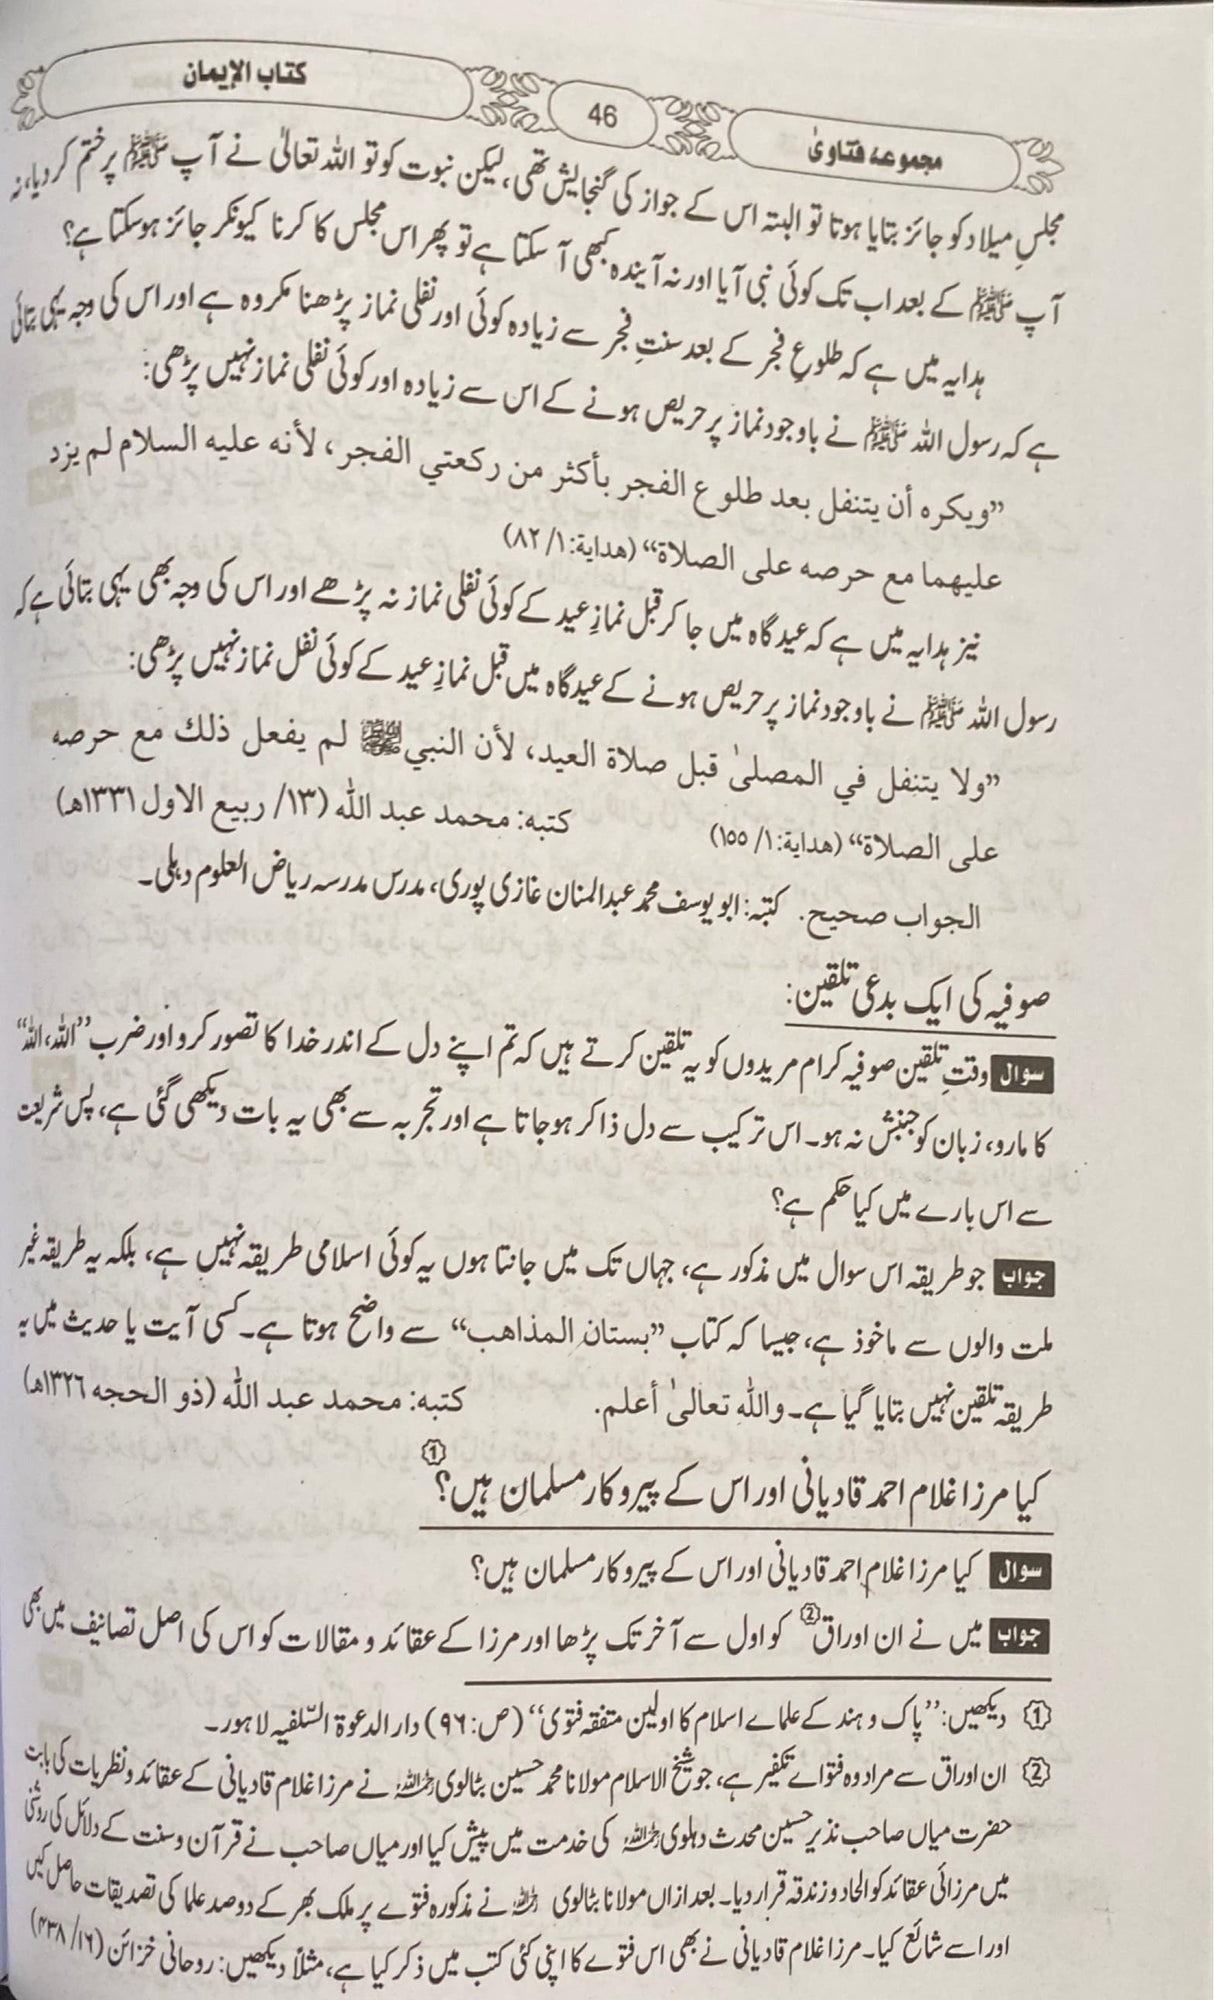 مجموعۂ فتاویٰ
46
کتاب الإیمان
مجلسِ میلاد کو جائز بتایا ہوتا تو البتہ اس کے جواز کی گنجایش تھی، لیکن نبوت کو تو اللہ تعالیٰ نے آپ ﷺ پر ختم کر دیا، نہ
آپ ﷺ کے بعد اب تک کوئی نبی آیا اور نہ آیندہ کبھی آ سکتا ہے تو پھر اس مجلس کا کرنا کیونکر جائز ہوسکتا ہے؟
ہدایہ میں ہے کہ طلوعِ فجر کے بعد سنتِ فجر سے زیادہ کوئی اور نفلی نماز پڑھنا مکروہ ہے اور اس کی وجہ یہی بتائی
ہے کہ رسول اللہ ﷺ نے باوجود نماز پر حریص ہونے کے اس سے زیادہ اور کوئی نفلی نماز نہیں پڑھی:
”ویکره أن یتنفل بعد طلوع الفجر بأکثر من رکعتي الفجر، لأنه علیه السلام لم یزد
علیهما مع حرصه علی الصلاة“ (هدایة: ۱/ ۸۲)
نیز ہدایہ میں ہے کہ عیدگاہ میں جا کر قبل نمازِ عید کے کوئی نفلی نماز نہ پڑھے اور اس کی وجہ بھی یہی بتائی ہے کہ
رسول اللہ ﷺ نے باوجود نماز پر حریص ہونے کے عیدگاہ میں قبل نمازِ عید کے کوئی نفل نماز نہیں پڑھی:
”ولا یتنفل في المصلیٰ قبل صلاة العید، لأن النبي ﷺ لم یفعل ذلك مع حرصه
علی الصلاة“ (هدایة: ۱/ ۱۵۵) کتبه: محمد عبد الله (۱۳/ ربیع الاول ۱۳۳۱ھ)
الجواب صحیح. کتبہ: ابو یوسف محمد عبدالمنان غازی پوری، مدرس مدرسہ ریاض العلوم دہلی۔
صوفیہ کی ایک بدعی تلقین:
سوال وقتِ تلقین صوفیہ کرام مریدوں کو یہ تلقین کرتے ہیں کہ تم اپنے دل کے اندر خدا کا تصور کرو اور ضرب ”اللہ، اللہ“
کا مارو، زبان کو جنبش نہ ہو۔ اس ترکیب سے دل ذاکر ہوجاتا ہے اور تجربہ سے بھی یہ بات دیکھی گئی ہے، پس شریعت
سے اس بارے میں کیا حکم ہے؟
جواب جو طریقہ اس سوال میں مذکور ہے، جہاں تک میں جانتا ہوں یہ کوئی اسلامی طریقہ نہیں ہے، بلکہ یہ طریقہ غیر
ملت والوں سے ماخوذ ہے، جیسا کہ کتاب ”بستان المذاهب“ سے واضح ہوتا ہے۔ کسی آیت یا حدیث میں یہ
طریقہ تلقین نہیں بتایا گیا ہے۔ والله تعالیٰ أعلم. کتبه: محمد عبد الله (ذو الحجه ۱۳۲۶ھ)
کیا مرزا غلام احمد قادیانی اور اس کے پیروکار مسلمان ہیں؟ ①
سوال کیا مرزا غلام احمد قادیانی اور اس کے پیروکار مسلمان ہیں؟
جواب میں نے ان اوراق② کو اول سے آخر تک پڑھا اور مرزا کے عقائد و مقالات کو اس کی اصل تصانیف میں بھی
① دیکھیں: ”پاک و ہند کے علماے اسلام کا اولین متفقہ فتویٰ“ (ص: ۹۶) دار الدعوۃ السلفیہ لاہور۔
② ان اوراق سے مراد وہ فتواے تکفیر ہے، جو شیخ الاسلام مولانا محمد حسین بٹالوی رحمہ اللہ نے مرزا غلام قادیانی کے عقائد و نظریات کی بابت
حضرت میاں صاحب نذیر حسین محدث دہلوی رحمہ اللہ کی خدمت میں پیش کیا اور میاں صاحب نے قرآن و سنت کے دلائل کی روشنی
میں مرزائی عقائد کو الحاد و زندقہ قرار دیا۔ بعد ازاں مولانا بٹالوی رحمہ اللہ نے مذکورہ فتوے پر ملک بھر کے دو صد علما کی تصدیقات حاصل کیں
اور اسے شائع کیا۔ مرزا غلام قادیانی نے بھی اس فتوے کا اپنی کئی کتب میں ذکر کیا ہے، مثلاً دیکھیں: روحانی خزائن (۱۶/ ۴۳۸)